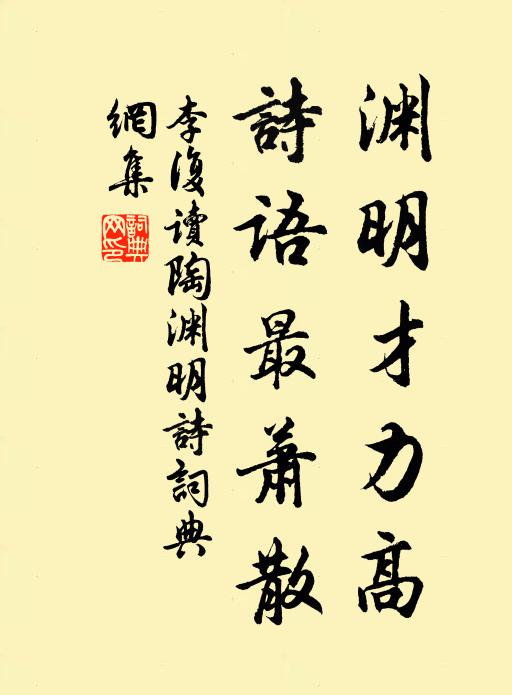 渊明才力高
詩語最蕭散
李復讀陶渊明詩詞典
網集
詞典网印